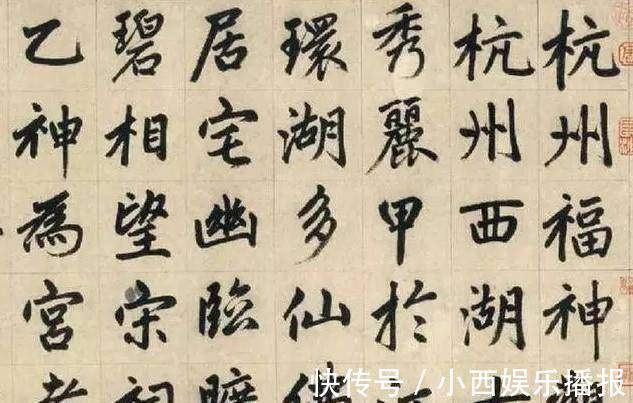 杭州福神
杭州西湖
秀麗甲於
環湖多仙
居宅幽臨曠
碧相望宋祠
乙神為宮者
快传号 / 小西娱乐播报